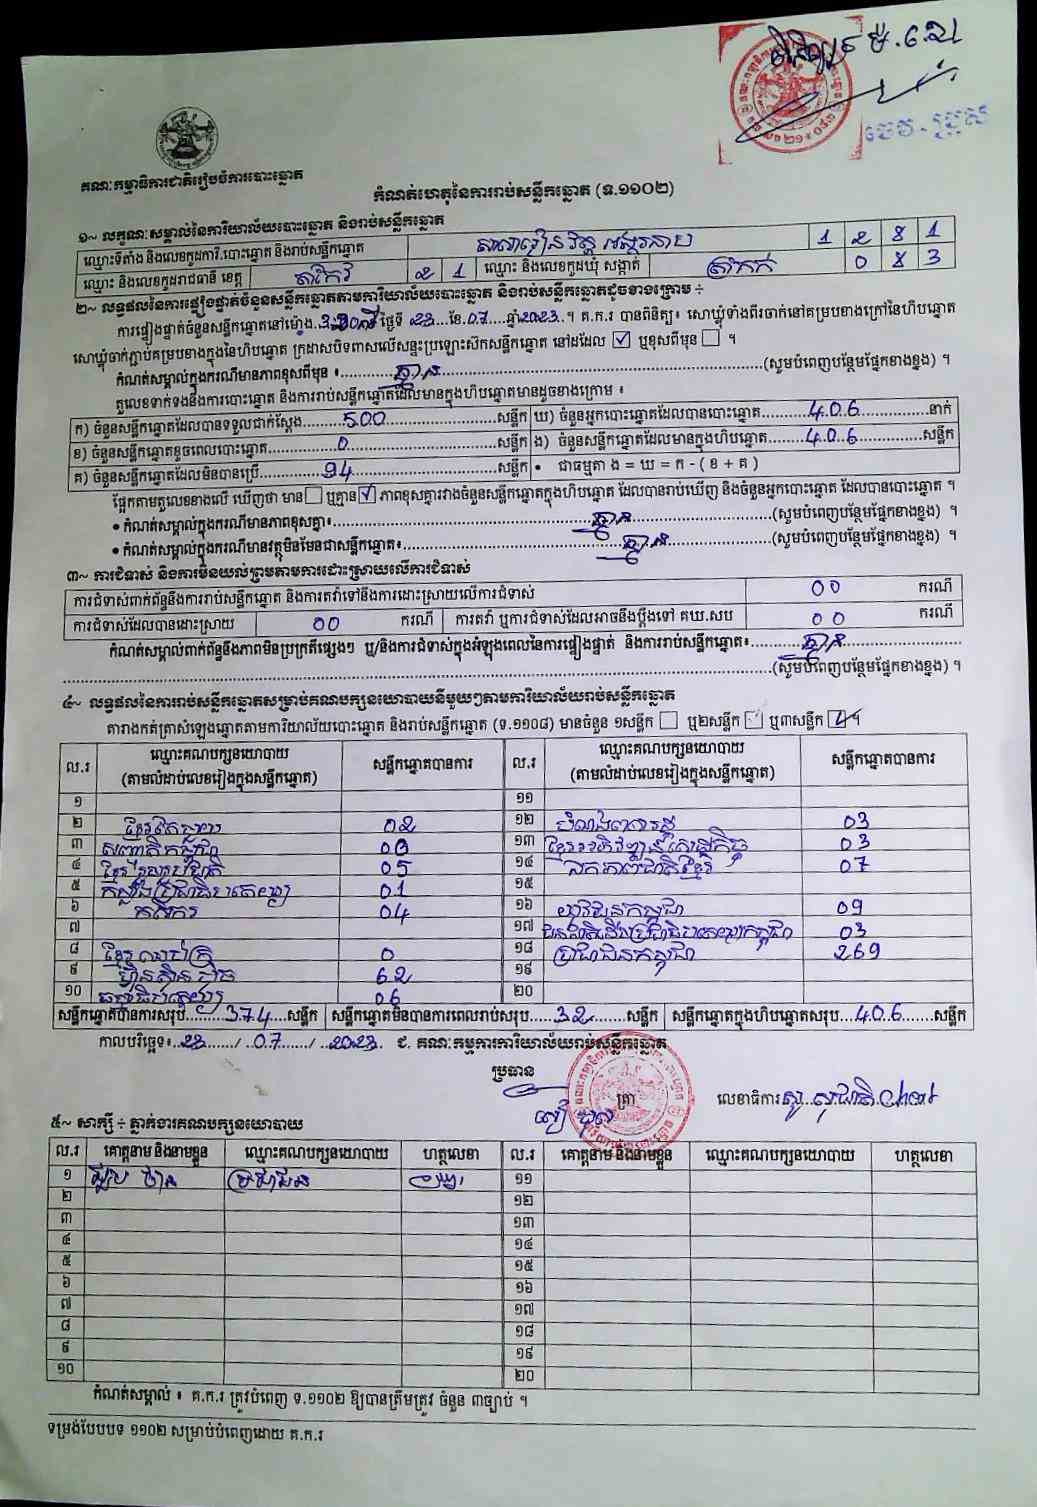 គណៈកម្មាធិការជាតិរៀបចំការបោះឆ្នោត
កំណត់ហេតុនៃការរាប់សន្លឹកឆ្នោត (ទ.១១០២)
១~ លក្ខណៈសម្គាល់នៃការិយាល័យបោះឆ្នោត និងរាប់សន្លឹកឆ្នោត
ឈ្មោះទីតាំង និងលេខកូដការិ.បោះឆ្នោត និងរាប់សន្លឹកឆ្នោត 1 2 8 1
ឈ្មោះ និងលេខកូដរាជធានី ខេត្ត តាកែវ 2 1 ឈ្មោះ និងលេខកូដឃុំ សង្កាត់ 0 8 3
២~ លទ្ធផលនៃការផ្ទៀងផ្ទាត់ចំនួនសន្លឹកឆ្នោតតាមការិយាល័យបោះឆ្នោត និងរាប់សន្លឹកឆ្នោតដូចខាងក្រោម ÷
ការផ្ទៀងផ្ទាត់ចំនួនសន្លឹកឆ្នោតនៅម៉ោង ថ្ងៃទី 23 ខែ 07 ឆ្នាំ 2023 ។ គ.ក.រ បានពិនិត្យ៖ សោឃ្លុំទាំងពីរចាក់នៅគម្របខាងក្រៅនៃហិបឆ្នោត
សោឃ្លុំចាក់ភ្ជាប់គម្របខាងក្នុងនៃហិបឆ្នោត ក្រដាសបិទពាសលើសន្ទះប្រឡោះស៊កសន្លឹកឆ្នោត នៅដដែល ☑ ឬខុសពីមុន ☐ ។
កំណត់សម្គាល់ក្នុងករណីមានភាពខុសពីមុន ៖ គ្មាន (សូមបំពេញបន្ថែមផ្នែកខាងខ្នង) ។
តួលេខទាក់ទងនឹងការបោះឆ្នោត និងការរាប់សន្លឹកឆ្នោតដែលមានក្នុងហិបឆ្នោតមានដូចខាងក្រោម ៖
ក) ចំនួនសន្លឹកឆ្នោតដែលបានទទួលជាក់ស្តែង 500 សន្លឹក ឃ) ចំនួនអ្នកបោះឆ្នោតដែលបានបោះឆ្នោត 406 នាក់
ខ) ចំនួនសន្លឹកឆ្នោតខូចពេលបោះឆ្នោត 0 សន្លឹក ង) ចំនួនសន្លឹកឆ្នោតដែលមានក្នុងហិបឆ្នោត 406 សន្លឹក
គ) ចំនួនសន្លឹកឆ្នោតដែលមិនបានប្រើ 94 សន្លឹក • ជាធម្មតា ង = ឃ = ក - ( ខ + គ )
ផ្អែកតាមតួលេខខាងលើ ឃើញថា មាន ☐ ឬគ្មាន ☑ ភាពខុសគ្នារវាងចំនួនសន្លឹកឆ្នោតក្នុងហិបឆ្នោត ដែលបានរាប់ឃើញ និងចំនួនអ្នកបោះឆ្នោត ដែលបានបោះឆ្នោត ។
• កំណត់សម្គាល់ក្នុងករណីមានភាពខុសគ្នា៖ គ្មាន (សូមបំពេញបន្ថែមផ្នែកខាងខ្នង) ។
• កំណត់សម្គាល់ក្នុងករណីមានវត្ថុមិនមែនជាសន្លឹកឆ្នោត៖ គ្មាន (សូមបំពេញបន្ថែមផ្នែកខាងខ្នង) ។
៣~ ការជំទាស់ និងការមិនយល់ព្រមតាមការដោះស្រាយលើការជំទាស់
ការជំទាស់ពាក់ព័ន្ធនឹងការរាប់សន្លឹកឆ្នោត និងការតវ៉ាទៅនឹងការដោះស្រាយលើការជំទាស់ 00 ករណី
ការជំទាស់ដែលបានដោះស្រាយ 00 ករណី ការតវ៉ា ឬការជំទាស់ដែលអាចនឹងប្តឹងទៅ គឃ.សប 00 ករណី
កំណត់សម្គាល់ពាក់ព័ន្ធនឹងភាពមិនប្រក្រតីផ្សេងៗ ឬ/និងការជំទាស់ក្នុងអំឡុងពេលនៃការផ្ទៀងផ្ទាត់ និងការរាប់សន្លឹកឆ្នោត៖ គ្មាន
(សូមបំពេញបន្ថែមផ្នែកខាងខ្នង) ។
៤~ លទ្ធផលនៃការរាប់សន្លឹកឆ្នោតសម្រាប់គណបក្សនយោបាយនីមួយៗតាមការិយាល័យរាប់សន្លឹកឆ្នោត
តារាងកត់ត្រាសំឡេងឆ្នោតតាមការិយាល័យបោះឆ្នោត និងរាប់សន្លឹកឆ្នោត (ទ.១១០៨) មានចំនួន ១សន្លឹក ☐ ឬ២សន្លឹក ☐ ឬ៣សន្លឹក ☑ ។
ល.រ ឈ្មោះគណបក្សនយោបាយ (តាមលំដាប់លេខរៀងក្នុងសន្លឹកឆ្នោត) សន្លឹកឆ្នោតបានការ ល.រ ឈ្មោះគណបក្សនយោបាយ (តាមលំដាប់លេខរៀងក្នុងសន្លឹកឆ្នោត) សន្លឹកឆ្នោតបានការ
១ ១១
២ 02 ១២ 03
៣ សញ្ជាតិកម្ពុជា ១៣ 03
៤ ខ្មែររួបរួមជាតិ 05 ១៤ ឯកភាពជាតិខ្មែរ 07
៥ កម្លាំងប្រជាធិបតេយ្យ 01 ១៥
៦ កសិករ 04 ១៦ យុវជនកម្ពុជា 09
៧ ១៧ ជនជាតិដើមប្រជាធិបតេយ្យកម្ពុជា 03
៨ 0 ១៨ ប្រជាជនកម្ពុជា 269
៩ ហ្វ៊ុនស៊ិនប៉ិច 62 ១៩
១០ ធម្មាធិបតេយ្យ 06 ២០
សន្លឹកឆ្នោតបានការសរុប 374 សន្លឹក សន្លឹកឆ្នោតមិនបានការពេលរាប់សរុប 32 សន្លឹក សន្លឹកឆ្នោតក្នុងហិបឆ្នោតសរុប 406 សន្លឹក
កាលបរិច្ឆេទ៖ 23 / 07 / 2023 ជ. គណៈកម្មការការិយាល័យរាប់សន្លឹកឆ្នោត
ប្រធាន
ត្រា លេខាធិការ
៥~ សាក្សី ÷ ភ្នាក់ងារគណបក្សនយោបាយ
ល.រ គោត្តនាម និងនាមខ្លួន ឈ្មោះគណបក្សនយោបាយ ហត្ថលេខា ល.រ គោត្តនាម និងនាមខ្លួន ឈ្មោះគណបក្សនយោបាយ ហត្ថលេខា
១ ប្រជាជន ១១
២ ១២
៣ ១៣
៤ ១៤
៥ ១៥
៦ ១៦
៧ ១៧
៨ ១៨
៩ ១៩
១០ ២០
កំណត់សម្គាល់ ៖ គ.ក.រ ត្រូវបំពេញ ទ.១១០២ ឱ្យបានត្រឹមត្រូវ ចំនួន ៣ច្បាប់ ។
ទម្រង់បែបបទ ១១០២ សម្រាប់បំពេញដោយ គ.ក.រ